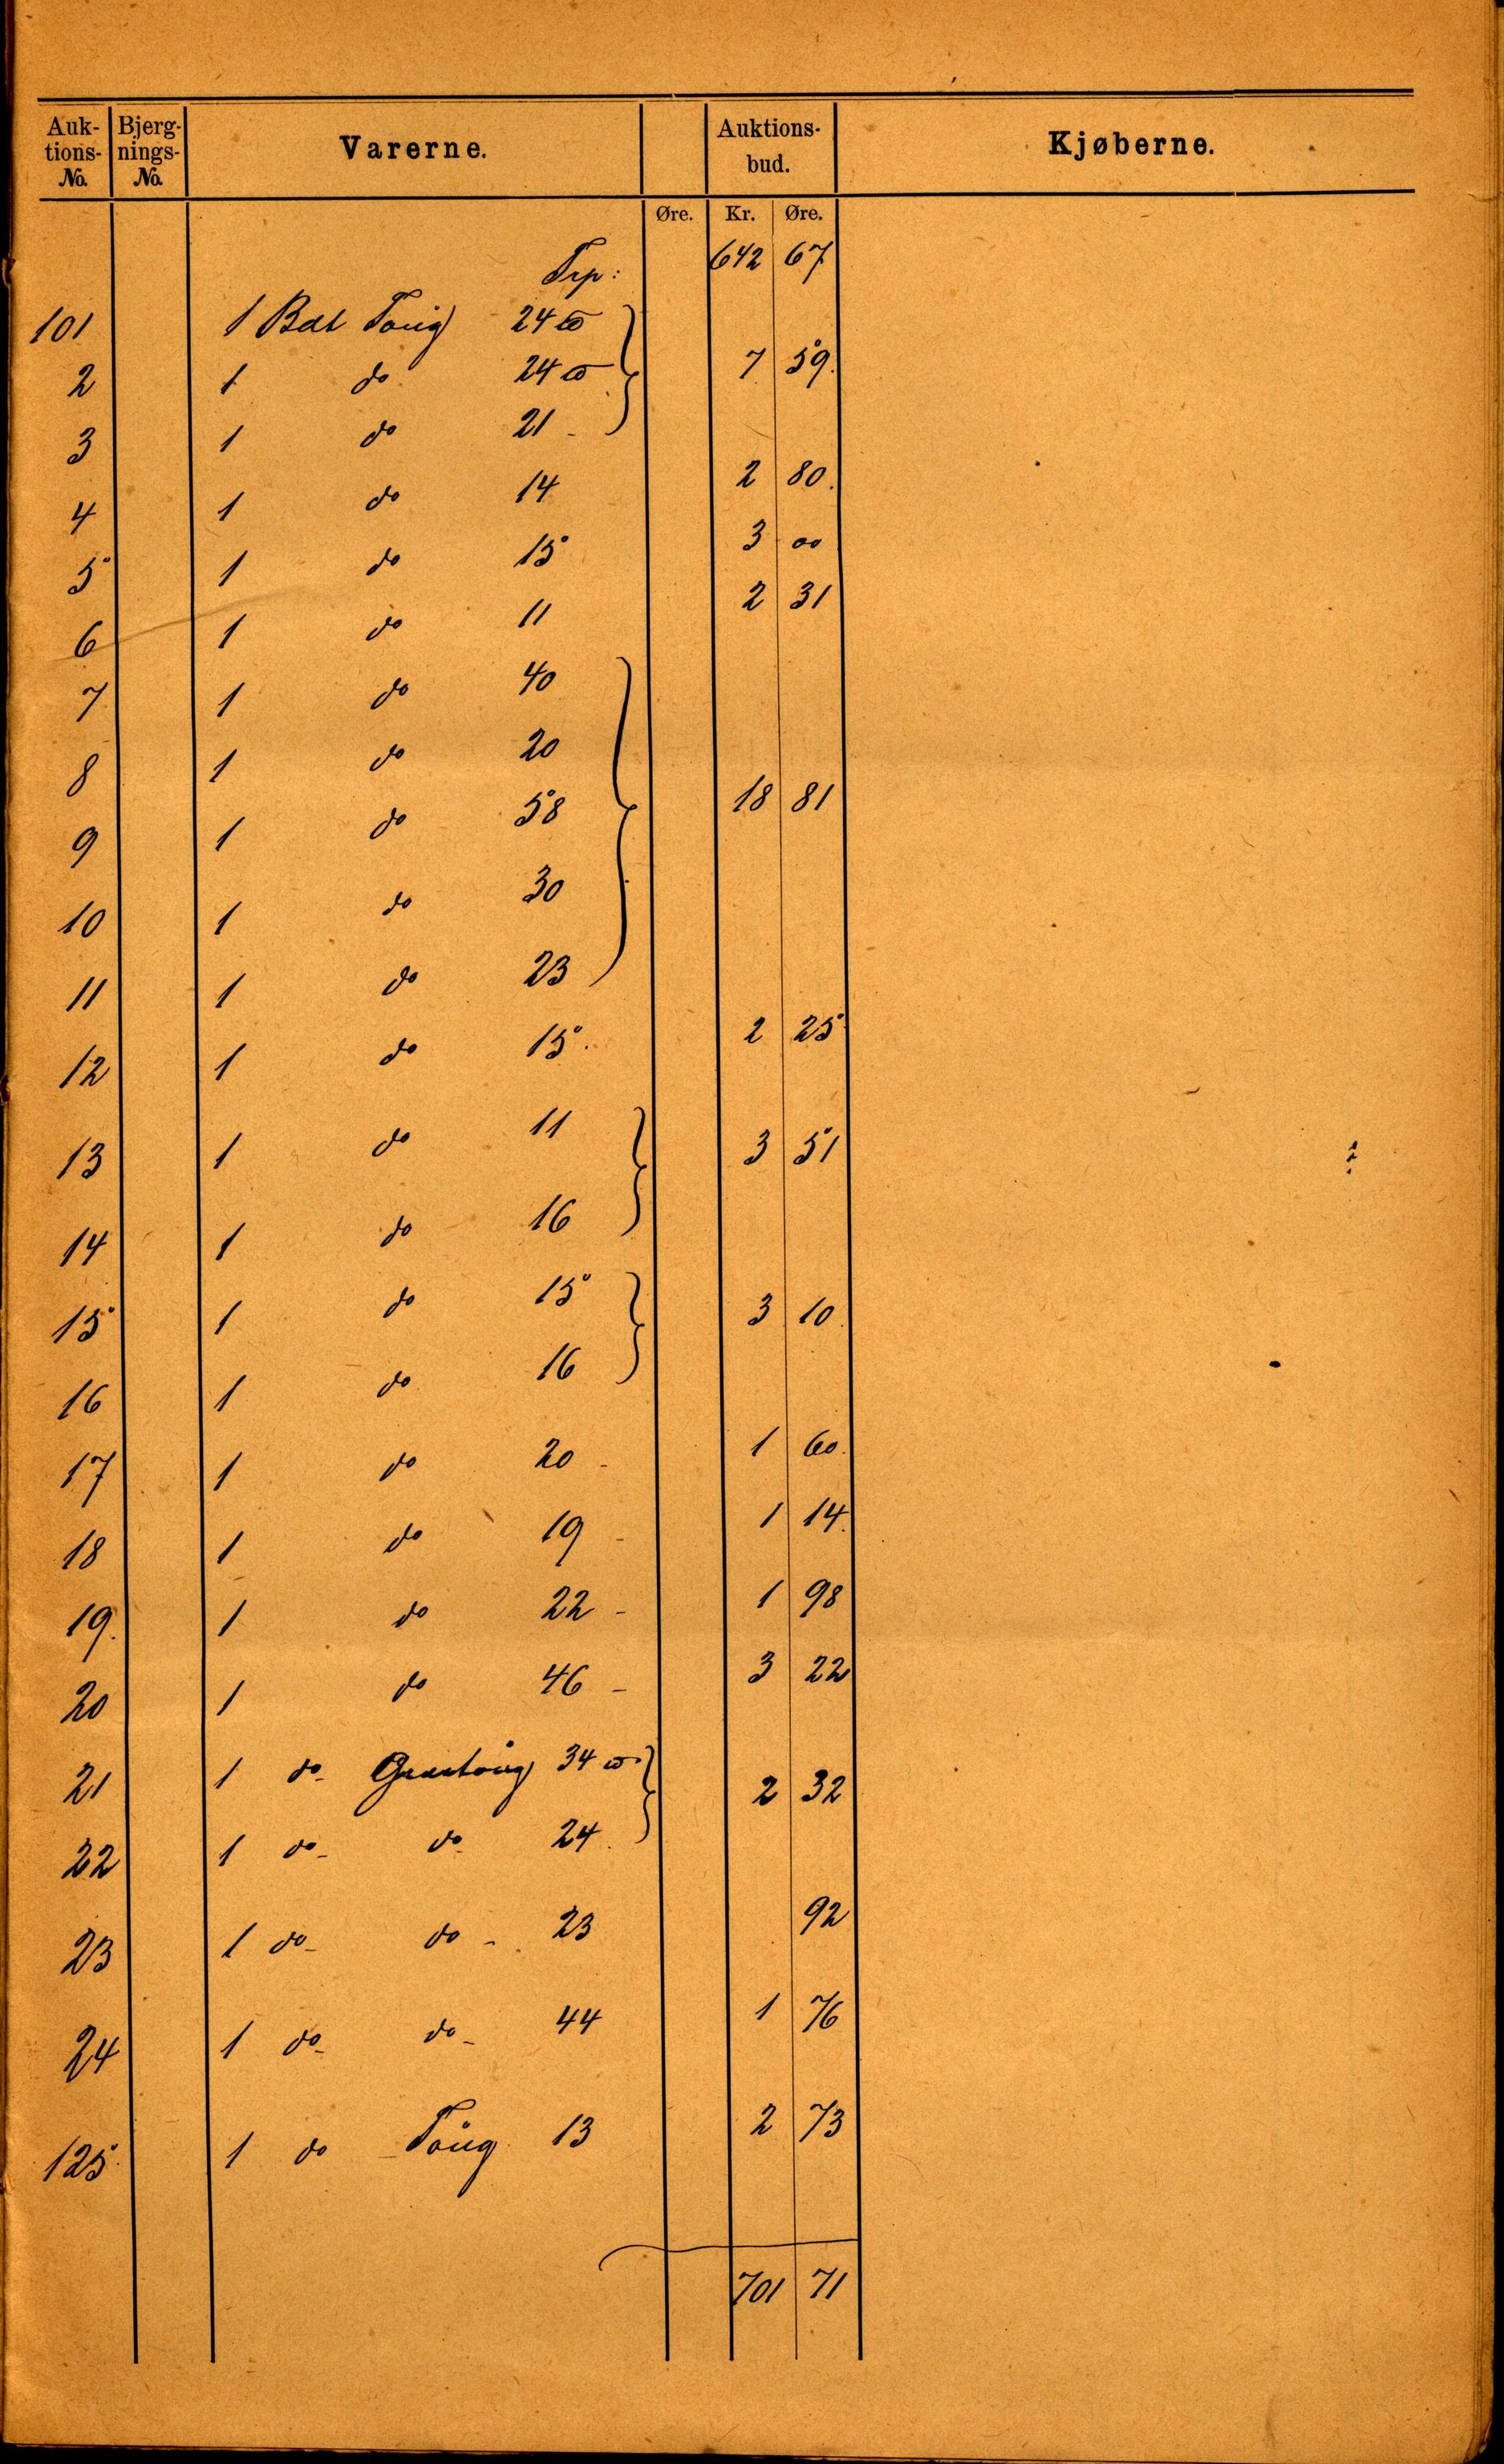 Auk- Bjerg- Varerne. Auktions- Kjøberne.
tions- nings- bud.
No. No.
Øre. Kr. Øre.
Trp: 642 67
101 1 Bdt Toug 24 ℔
2 1 do 24 ℔ 7 59.
3 1 do 21 -
4 1 do 14 2 80.
5 1 do 15 3 00
6 1 do 11 2 31
7 1 do 40
8 1 do 20
9 1 do 58 18 81
10 1 do 30
11 1 do 23
12 1 do 15. 2 25
13 1 do 11 3 51
14 1 do 16
15 1 do 15 3 10.
16 1 do 16
17 1 do 20 - 1 60.
18 1 do 19 - 1 14.
19. 1 do 22 - 1 98
20 1 do 46 - 3 22
21 1 do- 34 ℔. 2 32
22 1 do- do- 24.
23 1 do- do - 23 92
24 1 do- do- 44 1 76
125. 1 do - Toug 13 2 73
701 71